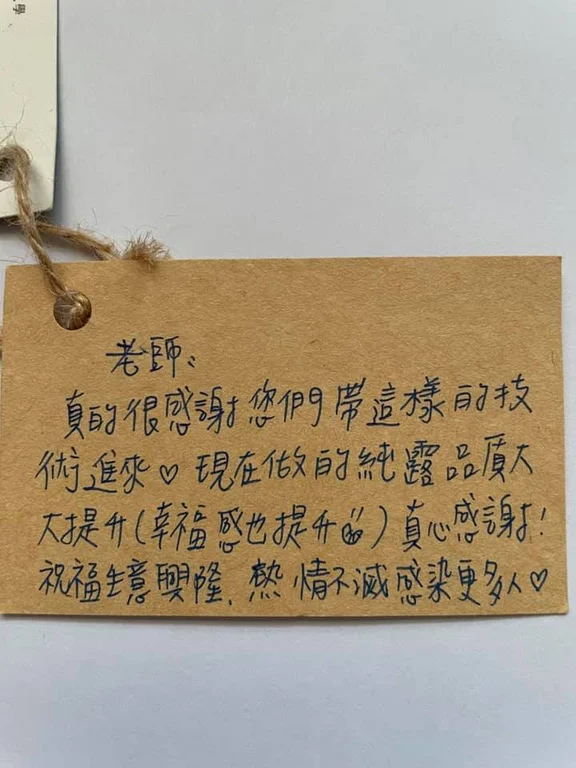 學
老師:
真的很感謝您們帶這樣的技
術進來♡現在做的純露品質大
大提升(幸福感也提升)真心感謝!
祝福生意興隆、熱情不滅感染更多人♡